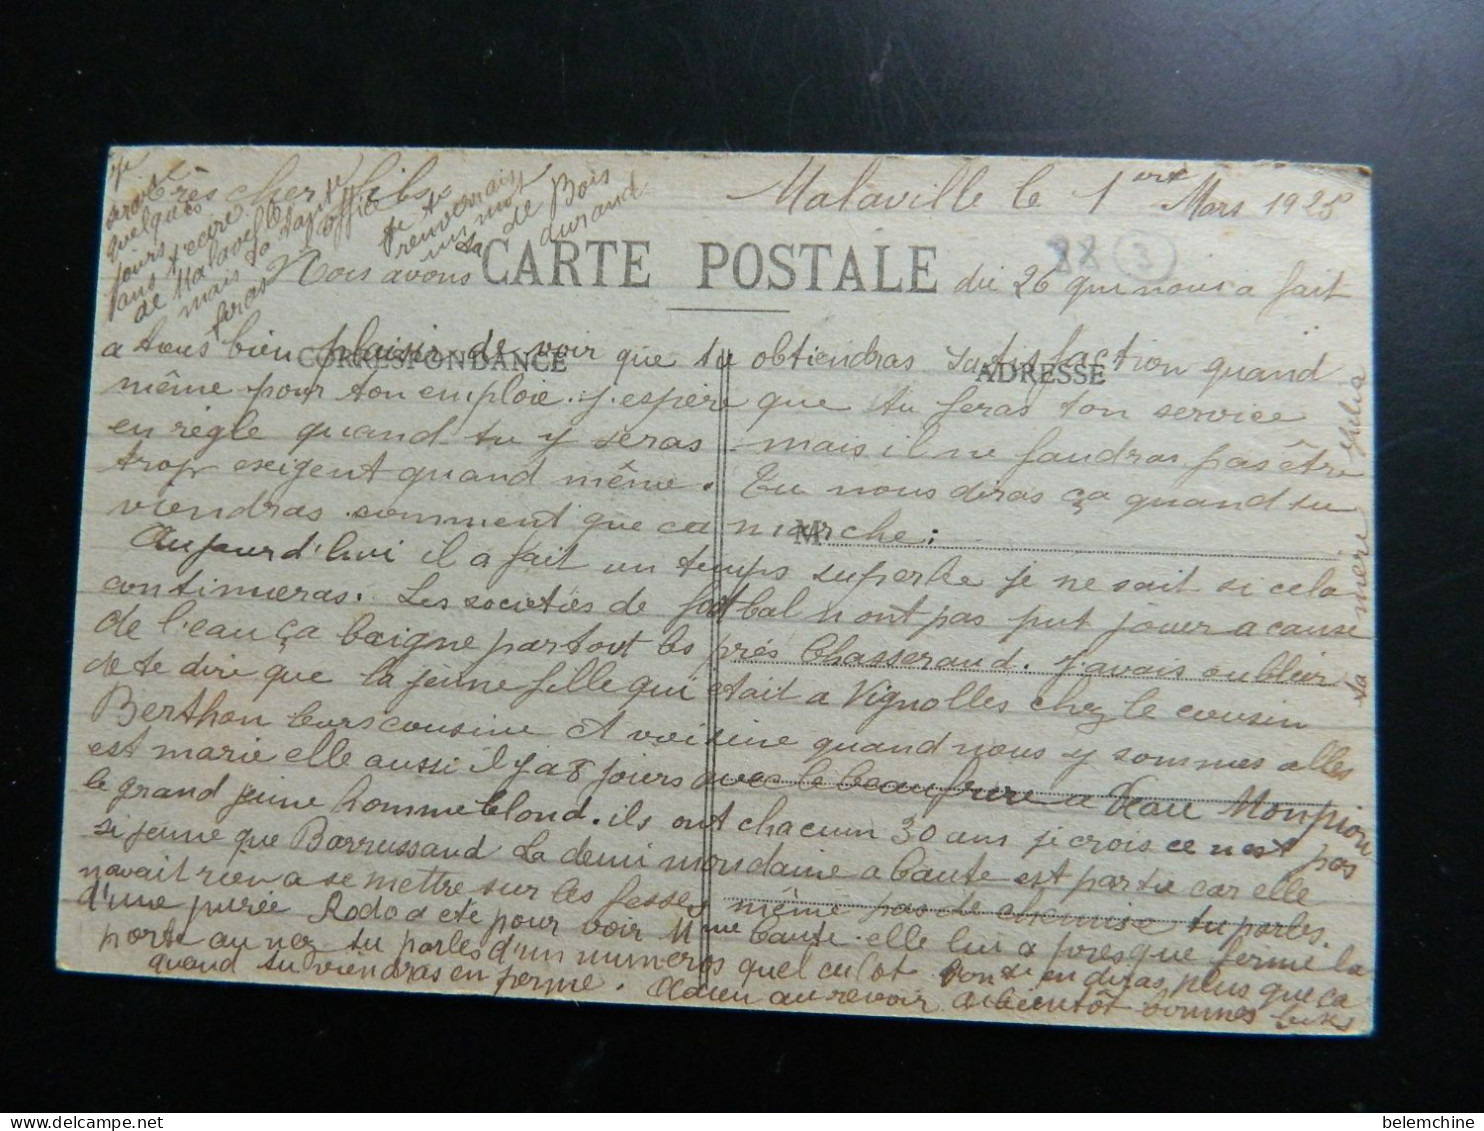 Très cher fils
Malaville le 1er Mars 1925
je te
renverrais
un mot
de Bois
durand
quelques
jours
sans t'ecrire
de Malaville
mais la
feras
CARTE POSTALE
88 3
Nous avons
du 26 qui nous a fait
CORRESPONDANCE
ADRESSE
a tous bien plaisir de voir que tu obtiendras satisfaction quand
même pour ton emploie. j'espère que tu feras ton service
en règle quand tu y seras mais il ne faudras pas être
trop exigent quand même. Tu nous diras ça quand tu
viendras comment que ca marche:
M
Aujourd'hui il a fait un temps superbe je ne sait si cela
continueras. Les societiés de footbal n'ont pas put jouer a cause
de l'eau ça baigne partout les près Chasseraud. j'avais oublier
de te dire que la jeune fille qui était a Vignolles chez le cousin
Berthon leurs cousine et voisine quand nous y sommes allés
est marié elle aussi il y a 8 jours avec le beaufrère a
le grand jeune homme blond. ils ont chacun 30 ans je crois ce nest pas
si jeune que Barrussaud La demi mondaine a est partie car elle
navait rien a se mettre sur les fesses même pas de chemise tu parles.
d'une purée a eté pour voir Mme elle lui a presque fermé la
porte au nez tu parles d'un numeros quel culot on t'en diras plus que ça
quand tu viendras en perme. Adieu au revoir a bientôt
ta mère Julia
belemchine